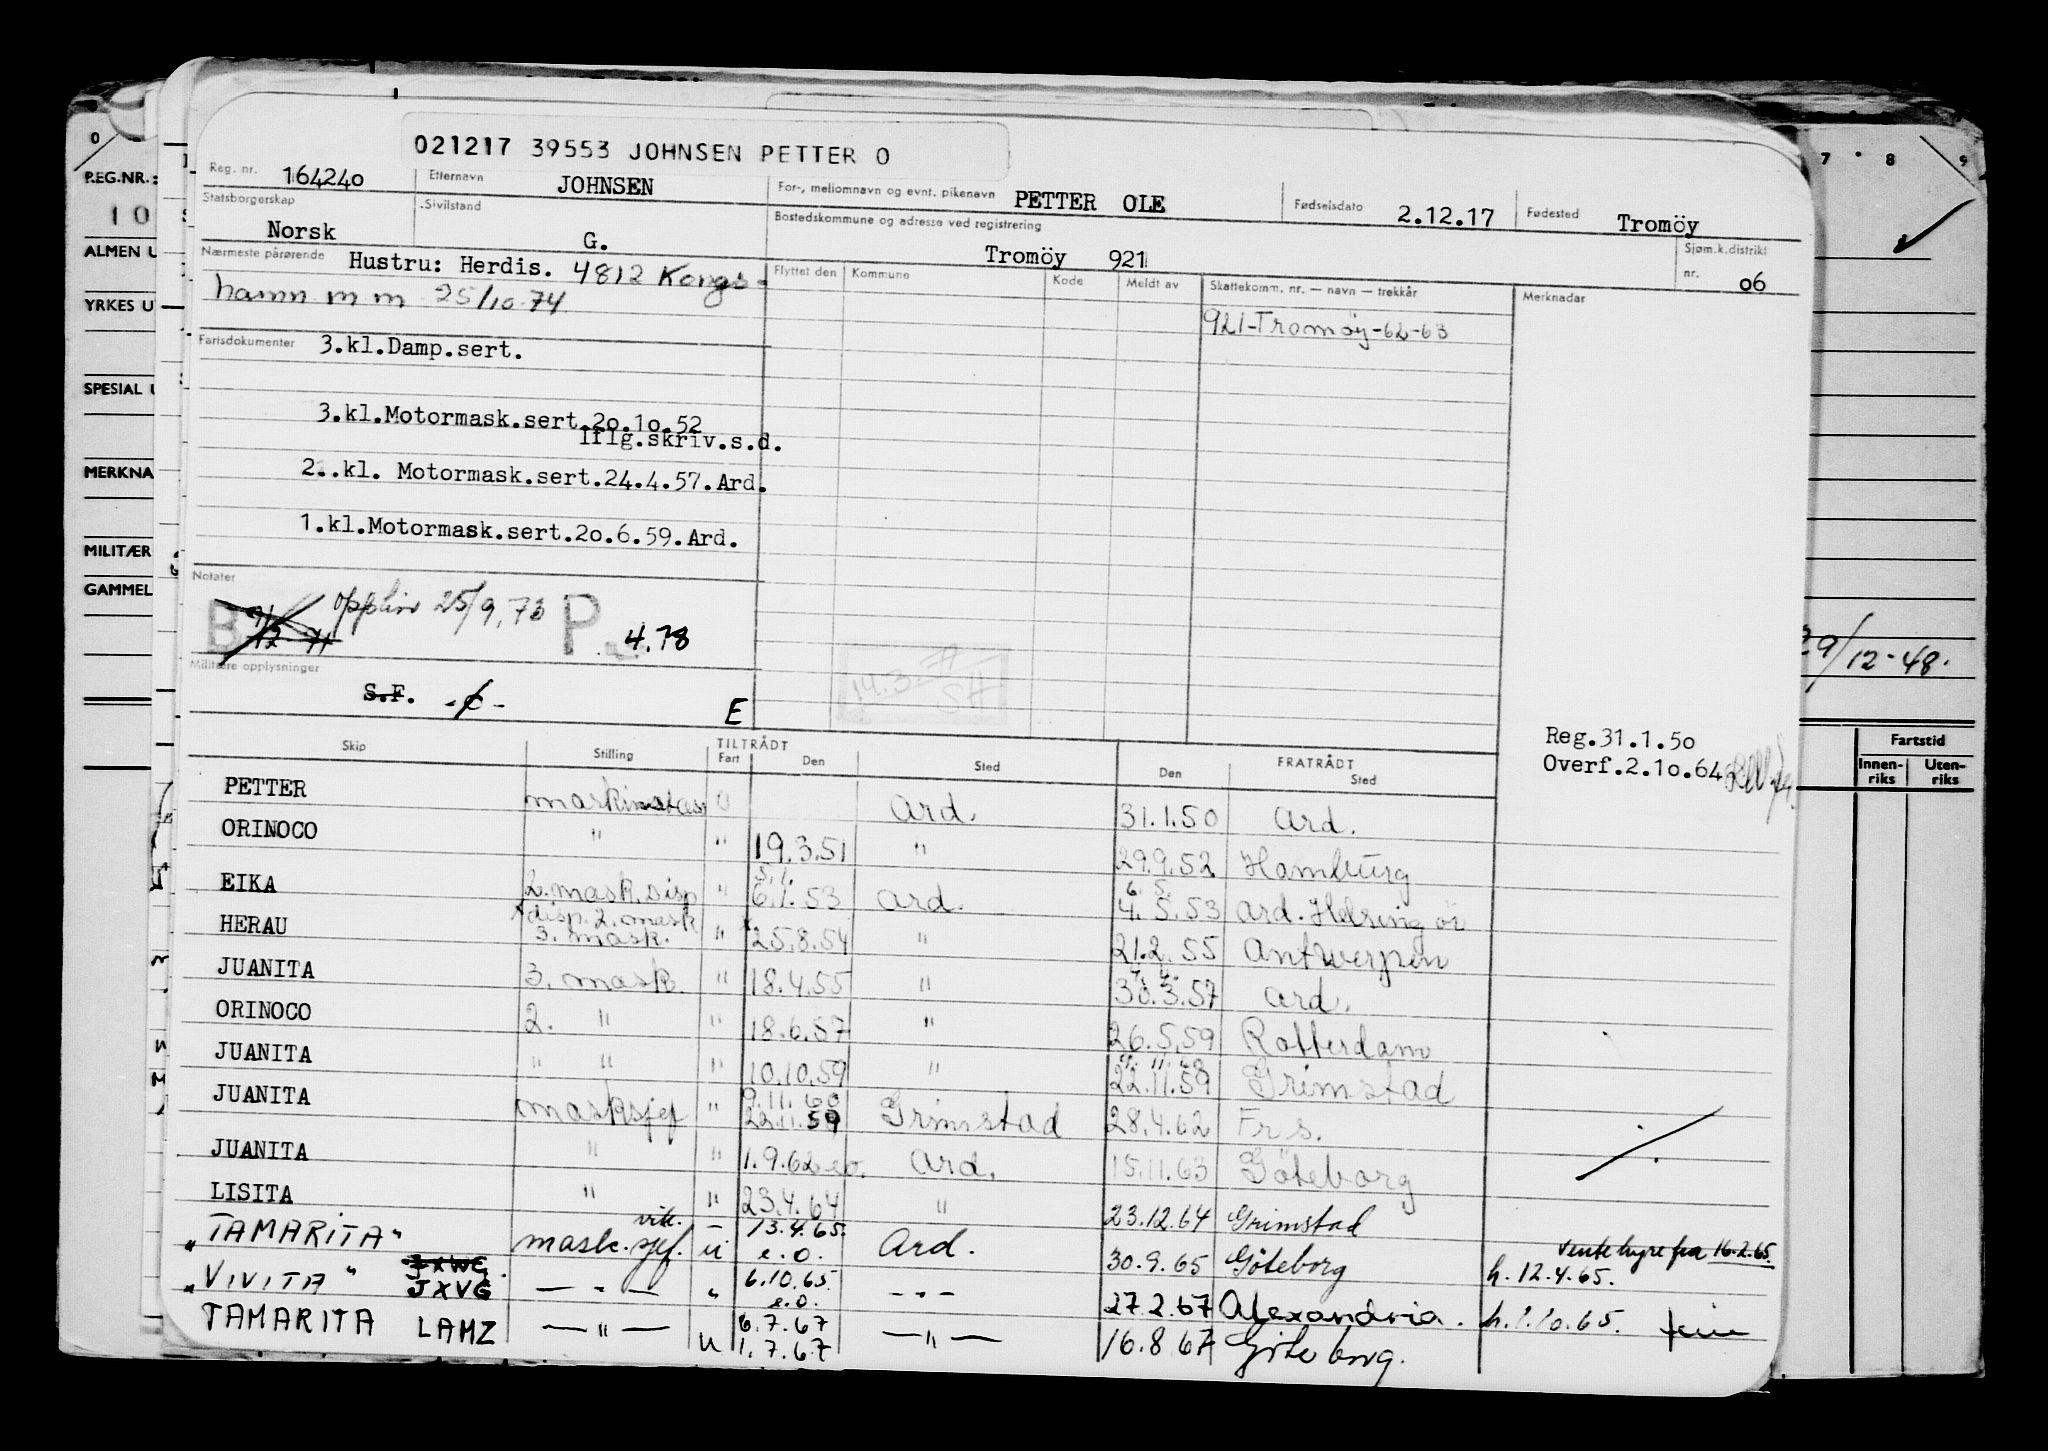 021217 39553 JOHNSEN PETTER O
Reg. nr. 164240 Etternavn JOHNSEN For-, mellomnavn og evnt. pikenavn PETTER OLE Fødselsdato 2.12.17 Fødested Tromöy
Statsborgerskap Norsk Sivilstand G. Bostedskommune og adresse ved registrering Tromöy 921 Sjøm.k.distrikt nr. 06
Nærmeste pårørende Hustru: Herdis. 4812 Kongs-
hamn m m 25/10-74
Flyttet den Kommune Kode Meldt av Skattekomm. nr. — navn — trekkår Merknader
921-Tromöy-62-63
Fartsdokumenter 3.kl.Damp.sert.
3.kl.Motormask.sert.20.10.52
iflg.skriv.s.d.
2..kl. Motormask.sert.24.4.57.Ard.
1.kl.Motormask.sert.20.6.59.Ard.
Notater
B 9/12 71 25/9.73 P 4.78
14.3.
SH
Militære opplysninger
S.F. E
Reg.31.1.50
Overf.2.10.64
Skip Stilling TILTRÅDT Fart Den Sted FRATRÅDT Den Sted
PETTER Ard. 31.1.50 Ard.
ORINOCO " " 19.3.51 " 29.9.52 Hamburg
5.1. 6.5.
EIKA 2.mask.disp " 6.1.53 Ard. 4.5.53 Ard. Helsingör
disp.2.mask
HERAU 3. mask. " 25.8.54 " 21.2.55 Antwerpen
4.4.
JUANITA 3. mask. " 18.4.55 " 30.3.57 Ard.
ORINOCO 2. " " 18.6.57 " 26.5.59 Rotterdam
9.11.60
JUANITA " " " 10.10.59 " 22.11.59 Grimstad
9.11.60
JUANITA masksjef " 22.11.59 Grimstad 28.4.62 Frs.
JUANITA " " 1.9.62 e.o. Ard. 15.11.63 Göteborg
LISITA " " 23.4.64 " 23.12.64 Grimstad
"TAMARITA" vik. mask.sjef. u 13.4.65. e.o. Ard. 30.9.65 Göteborg ventehyre fra 16.2.65.
h. 12.4.65.
"VIVITA" JXWG. JXVG — " — " 6.10.65 e.o. - " - 27.2.67 Alexandria. h. 1.10.65. ferie
TAMARITA LAMZ — " — u 6.7.67 — " — 16.8.67 Göteborg.
1.7.67
0 7 8 9
REG.NR.:
10
ALMEN U
YRKES U
SPECIAL U
MERKNA
MILITÆR
GAMMEL
29/12-48.
Fartstid
Innen-riks Uten-riks